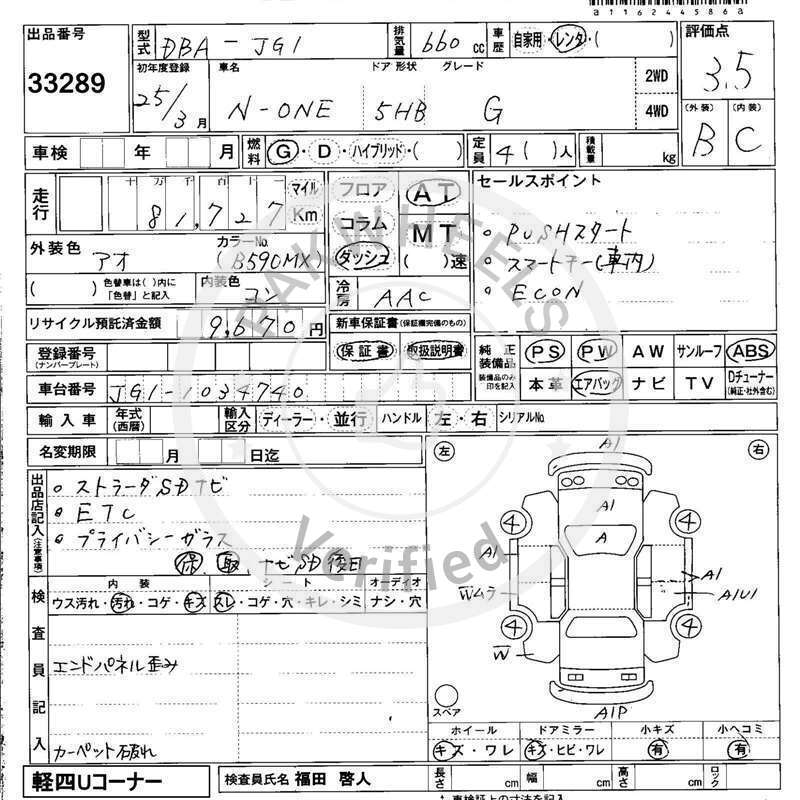 a116244586a
出品番号 型式 DBA-JG1 排気量 660 cc 車歴 自家用・レンタ・( ) 評価点
33289 初年度登録 車名 ドア 形状 グレード 2WD 3.5
25/3月 N-ONE 5HB G 4WD (外装) (内装)
B C
車検 年 月 燃料 G・D・ハイブリッド・( ) 定員 4( )人 積載量 kg
走行 十 万 千 百 十 一 マイル フロア AT セールスポイント
81,727 Km コラム MT
外装色 カラーNo. ダッシュ ( )速 ○PUSHスタート
アオ (B590MX) ○スマートキー(車内)
( ) 色替車は( )内に「色替」と記入 内装色 コン 冷房 AAC ○ECON
リサイクル預託済金額 9,670円 新車保証書(保証欄完備のもの)
登録番号(ナンバープレート) 保証書・取扱説明書 純正装備品 PS PW AW サンルーフ ABS
車台番号 JG1-1034740 装備品のみ印を記入 本革 エアバッグ ナビ TV Dチューナー(純正・社外含む)
輸入車 年式(西暦) 輸入区分 ディーラー・並行 ハンドル 左・右 シリアルNo.
名変期限 月 日迄 左 右
出品店記入(注意事項)
○ストラーダSDナビ
○ETC
○プライバシーガラス
保 取 ナビSD後日
内装 シート オーディオ
ウス汚れ・汚れ・コゲ・キズ スレ・コゲ・穴・キレ・シミ ナシ・穴
検査員記入
エンドパネル歪み
カーペット破れ
A1
A1
4 A 4
A1 A1
Wムラ A1U1
4 4
W
A1P
スペア
ホイール ドアミラー 小キズ 小ヘコミ
キズ・ワレ キズ・ヒビ・ワレ 有 有
軽四Uコーナー 検査員氏名 福田 啓人 長さ cm 幅 cm 高さ cm ロック
* 車検証上の寸法を記入
PAKWHEELS
Verified